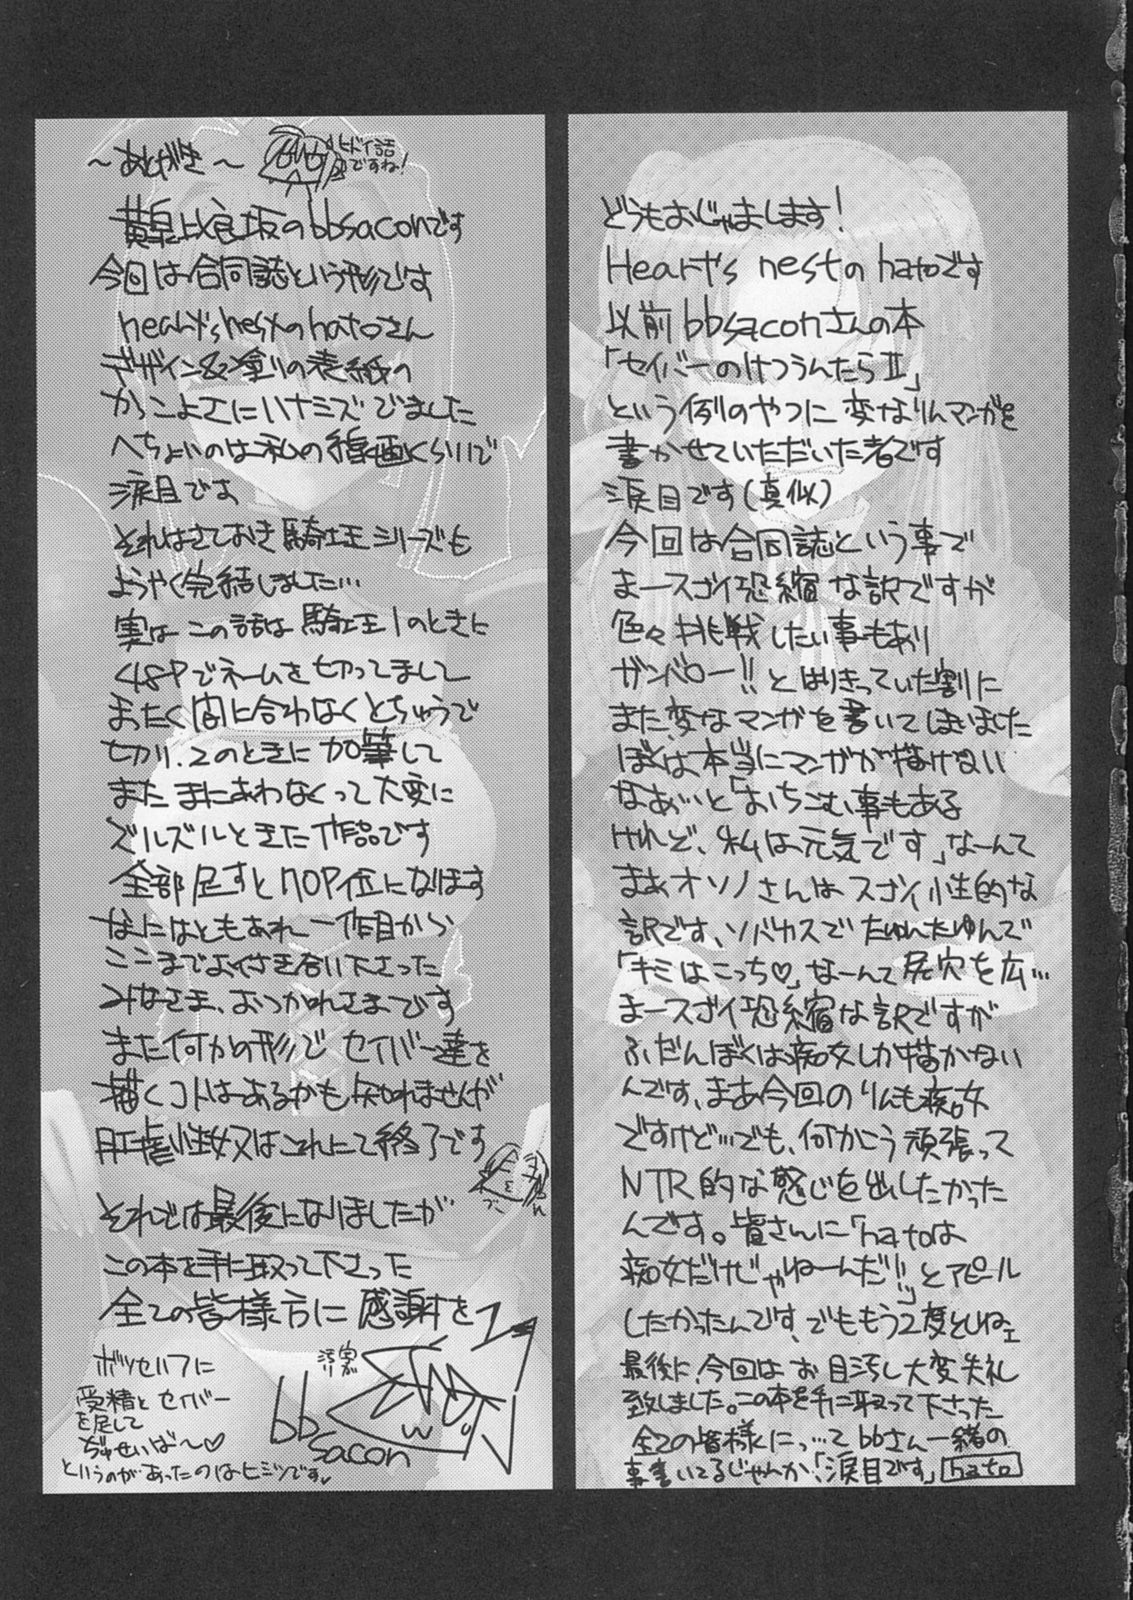 ～あとがき～
ヒドイ話
ですね！
黄泉比良坂のbbsaconです
今回は合同誌という形です
heart's nestのhatoさん
デザイン&塗りの表紙の
かっこよさにハナミズでました
へちょいのは私の線画くらいで
涙目です
それはさておき騎士王シリーズも
ようやく完結しました…
実はこの話は騎士王1のときに
48Pでネームを切ってまして
まったく間に合わなくとちゅうで
切り、2のときに加筆して
またまにあわなくって大変に
ズルズルときた作品です
全部足すと110P位になります
なにはともあれ一作目から
ここまでお付き合い下さった
みなさま、おつかれさまです
また何かの形でセイバー達を
描くコトはあるかも知れませんが
肛虐性奴又はこれにて終了です
それでは最後になりましたが
この本を手に取って下さった
全ての皆様方に感謝を
bb
sacon
ボツセリフに
受精とセイバー
を足して
ぢゅせいばー♡
というのがあったのはヒミツです
どうもおじゃまします！
Heart's nestのhatoです
以前bbsaconさんの本
「セイバーのけつうんたらⅡ」
という例のやつに変なりんマンガを
書かせていただいた者です
涙目です(真似)
今回は合同誌という事で
まースゴイ恐縮な訳ですが
色々挑戦したい事もあり
ガンバロー!!とはりきっていた割に
また変なマンガを書いてしまいました
ぼくは本当にマンガが描けない
なあ…と「おちこむ事もある
けれど、私は元気です」なーんて
まあオソノさんはスゴイ性的な
訳です、ソバカスでたゆんたゆんで
「キミはこっち♡」なーんて尻穴を広…
まースゴイ恐縮な訳ですが
ふだんぼくは痴女しか描かない
んです、まあ今回のりんも痴女
ですけど…でも、何かこう頑張って
NTR的な感じを出したかった
んです。皆さんに「hatoは
痴女だけじゃねーんだ!!」とアピール
したかったんです、でももう2度としねェ
最後に、今回はお目汚し大変失礼
致しました。この本を手に取って下さった
全ての皆様に…ってbbさんと一緒の
事書いてるじゃんか、「涙目です」hato